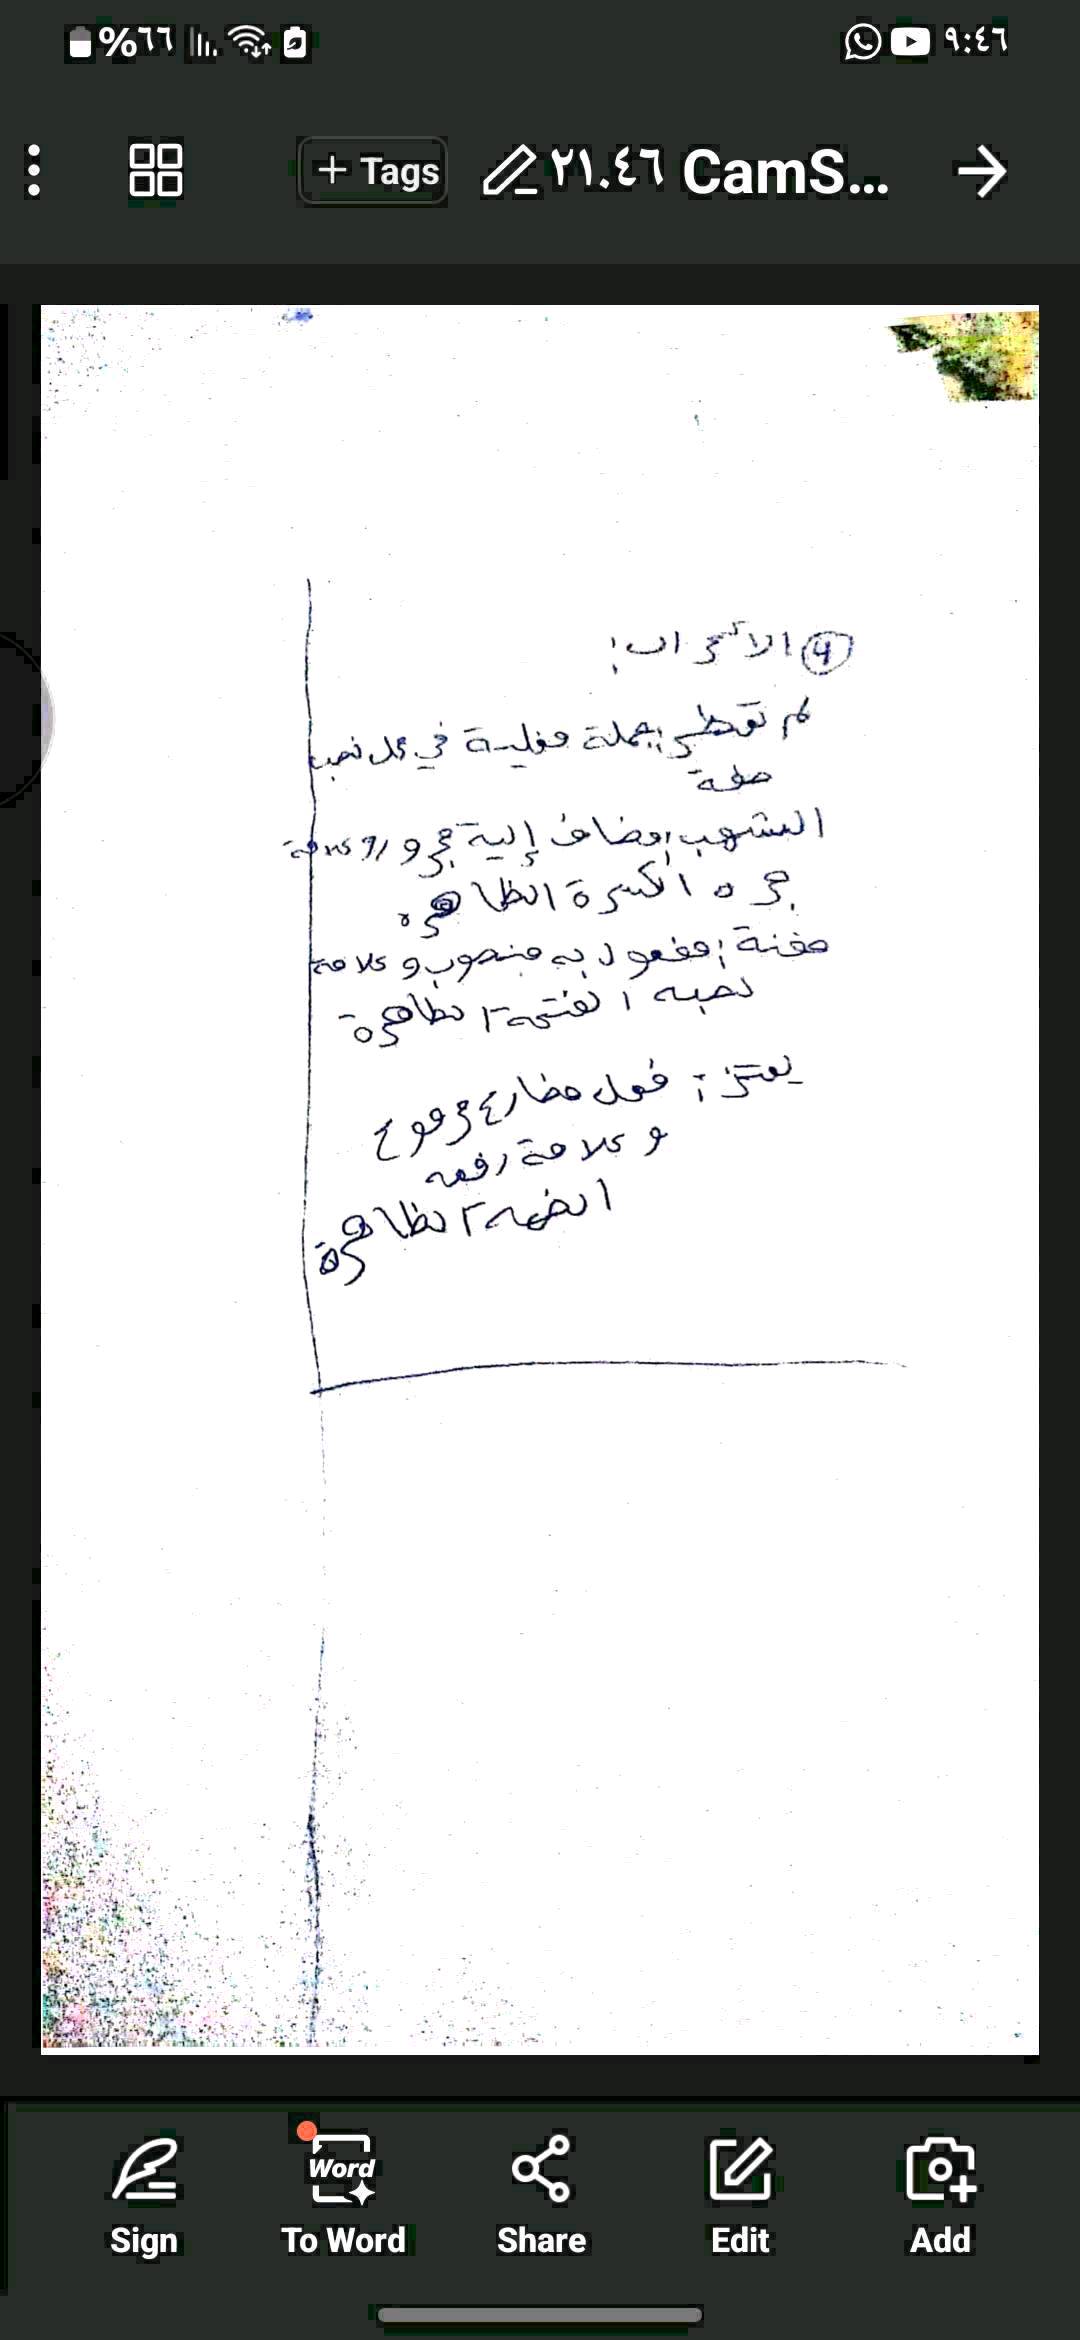 %٦٦
٩:٤٦
+ Tags
٢١.٤٦ CamS...
④ الاعراب:
لم تقطر: جملة فعلية في محل نصب
صفة
الشهب: مضاف إلية مجرور وعلامة
جره الكسرة الظاهره
حفنة: مفعول به منصوب وعلامة
نصبه الفتحة الظاهرة
يعتز: فعل مضارع مرفوع
وعلامة رفعه
الضمه الظاهرة
Sign
Word
To Word
Share
Edit
Add